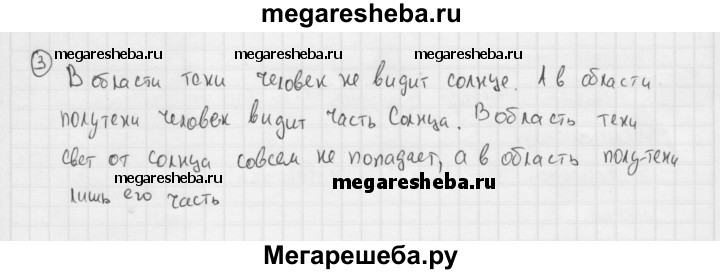 megaresheba.ru
③ megaresheba.ru megaresheba.ru megaresheba.ru
В области тени человек не видит солнце. А в области
полутени человек видит часть Солнца. В область тени
свет от солнца совсем не попадает, а в область полутени
megaresheba.ru megaresheba.ru
лишь его часть
Мегарешеба.ру